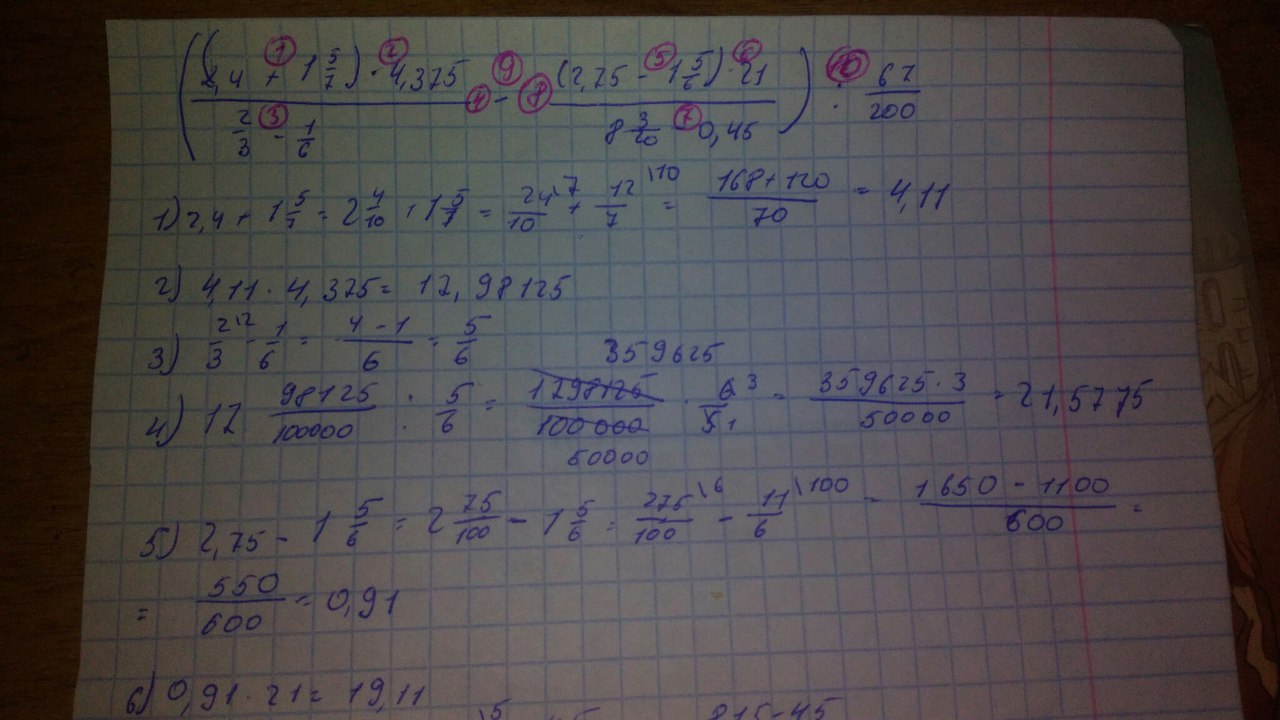 ((2,4 + 1 5/7) · 4,375 / (2/3 - 1/6) - (2,75 - 1 5/6) · 21 / (8 3/20 - 0,45)) : 67/200
① ② ③ ④ ⑤ ⑥ ⑦ ⑧ ⑨ ⑩
1) 2,4 + 1 5/7 = 2 4/10 + 1 5/7 = 24\7/10 + 12\10/7 = 168+120/70 = 4,11
2) 4,11 · 4,375 = 12,98125
3) 2\2/3 - 1/6 = 4-1/6 = 5/6
4) 12 98125/100000 : 5/6 = 1298125/100000 · 6/5 = 359625·3/50000 = 21,5775
359625
50000
3
1
5) 2,75 - 1 5/6 = 2 75/100 - 1 5/6 = 275\6/100 - 11\100/6 = 1650-1100/600 =
= 550/600 = 0,91
6) 0,91 · 21 = 19,11